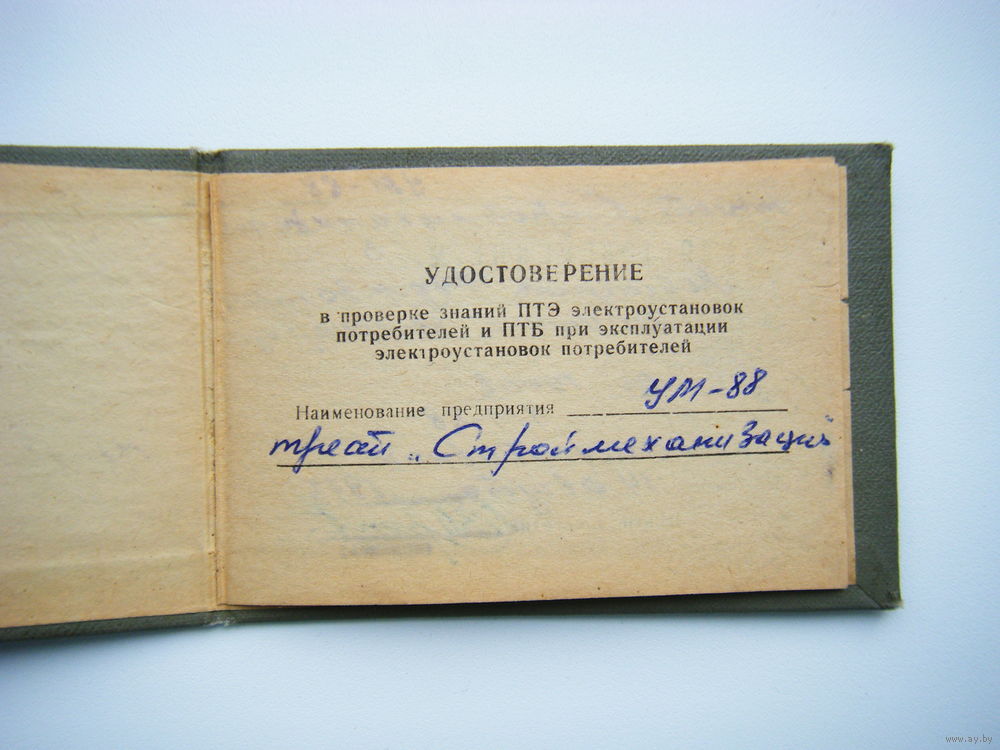 УДОСТОВЕРЕНИЕ
в проверке знаний ПТЭ электроустановок
потребителей и ПТБ при эксплуатации
электроустановок потребителей
Наименование предприятия УМ-88
трест „Строймеханизация"
www.ay.by